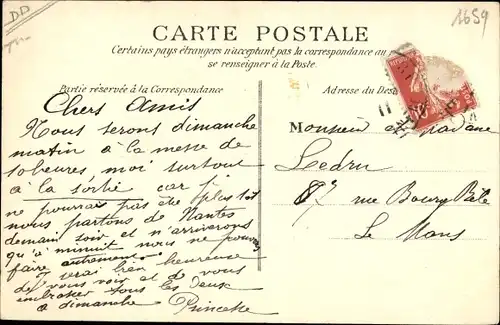 DD
1659
CARTE POSTALE
Certains pays étrangers n'acceptant pas la correspondance au
se renseigner à la Poste.
Partie réservée à la Correspondance
Adresse du Dest
Chers Amis
Nous serons dimanche
matin à la messe de
10 heures, moi surtout
à la sortie car je
ne pourrais pas être plus tôt
nous partons de Nantes
demain soir et n'arriverons
qu'à minuit nous ne pouvons
faire autrement
Je serai bien heureuse
de vous voir et de vous
embrasser tous les deux
à dimanche Princesse
Monsieur et Madame
Ledru
87 rue Bourg Belé
Le Mans
10